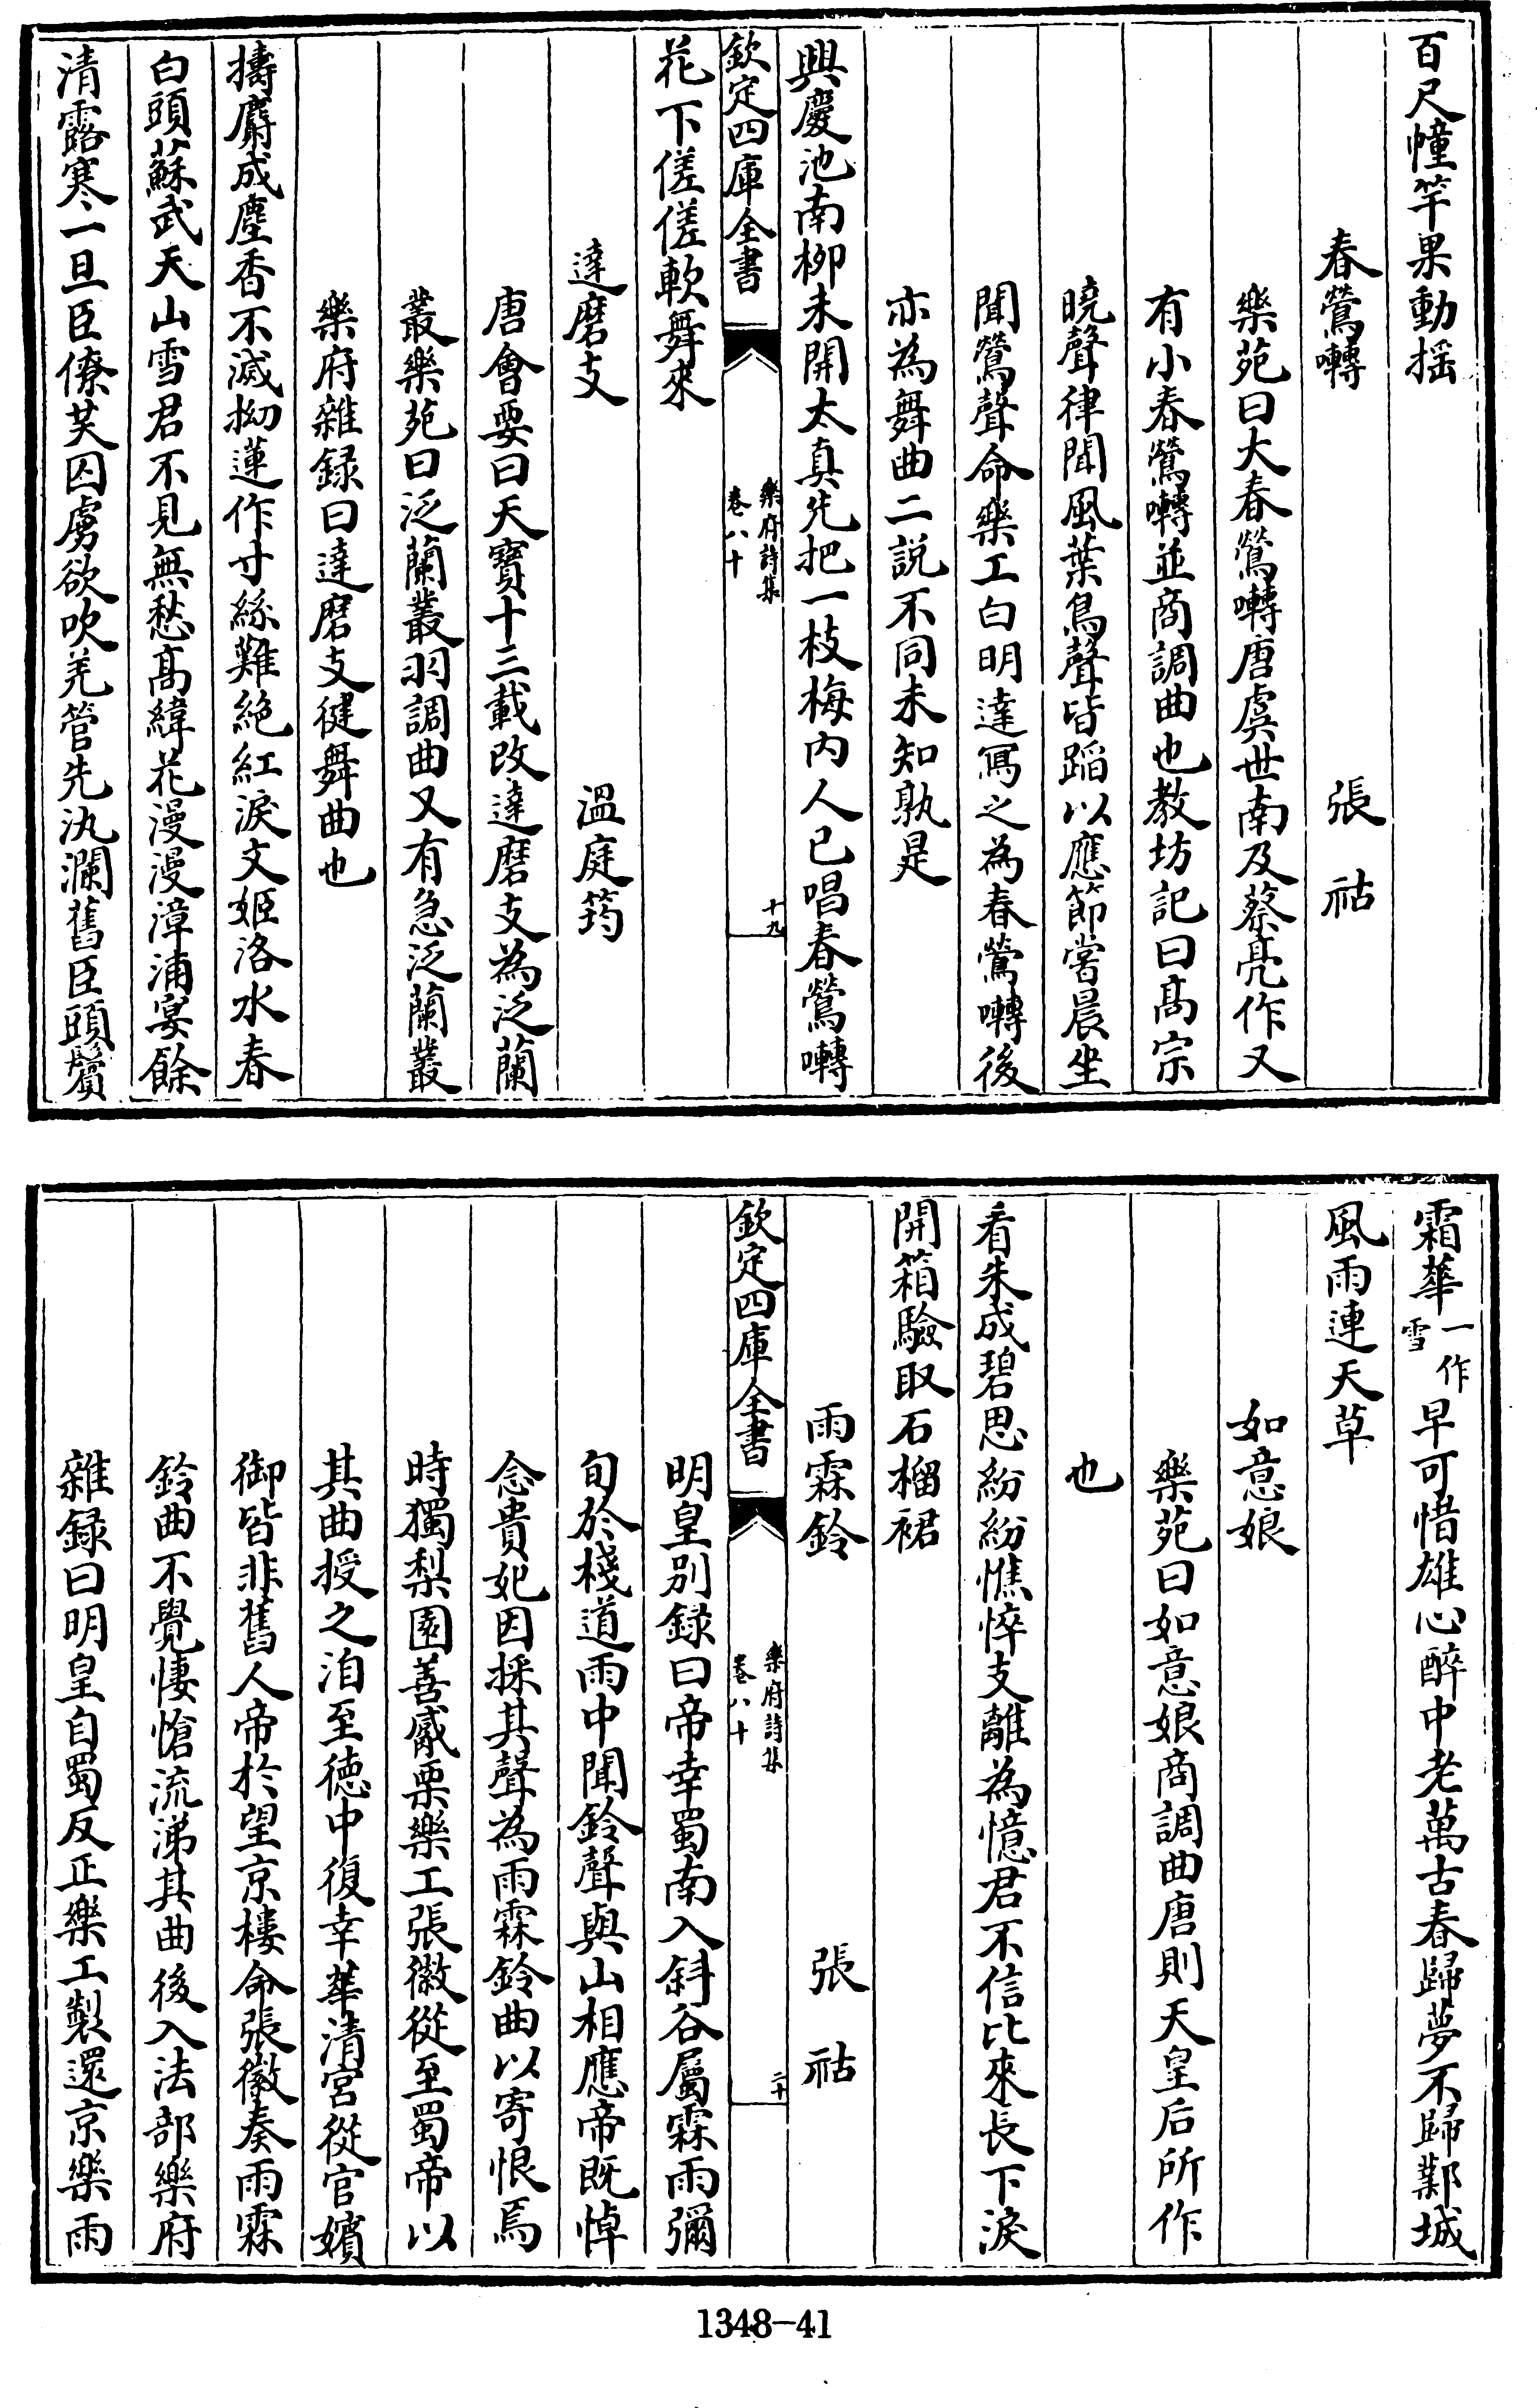 百尺幢竿果動揺
春鶯囀　張祜
樂苑曰大春鶯囀唐虞世南及蔡亮作又
有小春鶯囀並商調曲也教坊記曰髙宗
曉聲律聞風葉鳥聲皆蹈以應節嘗晨坐
聞鶯聲命樂工白明達寫之為春鶯囀後
亦為舞曲二説不同未知孰是
興慶池南柳未開太真先把一枝梅内人已唱春鶯囀
欽定四庫全書
樂府詩集
卷八十
十九
花下傞傞軟舞來
達磨支　温庭筠
唐會要曰天寳十三載改達磨支為泛蘭
叢樂苑曰泛蘭叢羽調曲又有急泛蘭叢
樂府雜録曰達磨支健舞曲也
擣麝成塵香不滅拗蓮作寸絲難絶紅淚文姬洛水春
白頭蘇武天山雪君不見無愁髙緯花漫漫漳浦宴餘
清露寒一旦臣僚共囚虜欲吹羌管先汍瀾舊臣頭鬢
霜華一作雪早可惜雄心醉中老萬古春歸夢不歸鄴城
風雨連天草
如意娘
樂苑曰如意娘商調曲唐則天皇后所作
也
看朱成碧思紛紛憔悴支離為憶君不信比來長下淚
開箱驗取石榴裙
雨霖鈴　張祜
欽定四庫全書
樂府詩集
卷八十
二十
明皇别録曰帝幸蜀南入斜谷屬霖雨彌
旬於棧道雨中聞鈴聲與山相應帝既悼
念貴妃因採其聲為雨霖鈴曲以寄恨焉
時獨梨園善觱栗樂工張徽從至蜀帝以
其曲授之洎至徳中復幸華清宫從官嬪
御皆非舊人帝於望京樓命張徽奏雨霖
鈴曲不覺悽愴流涕其曲後入法部樂府
雜録曰明皇自蜀反正樂工製還京樂雨
1348-41